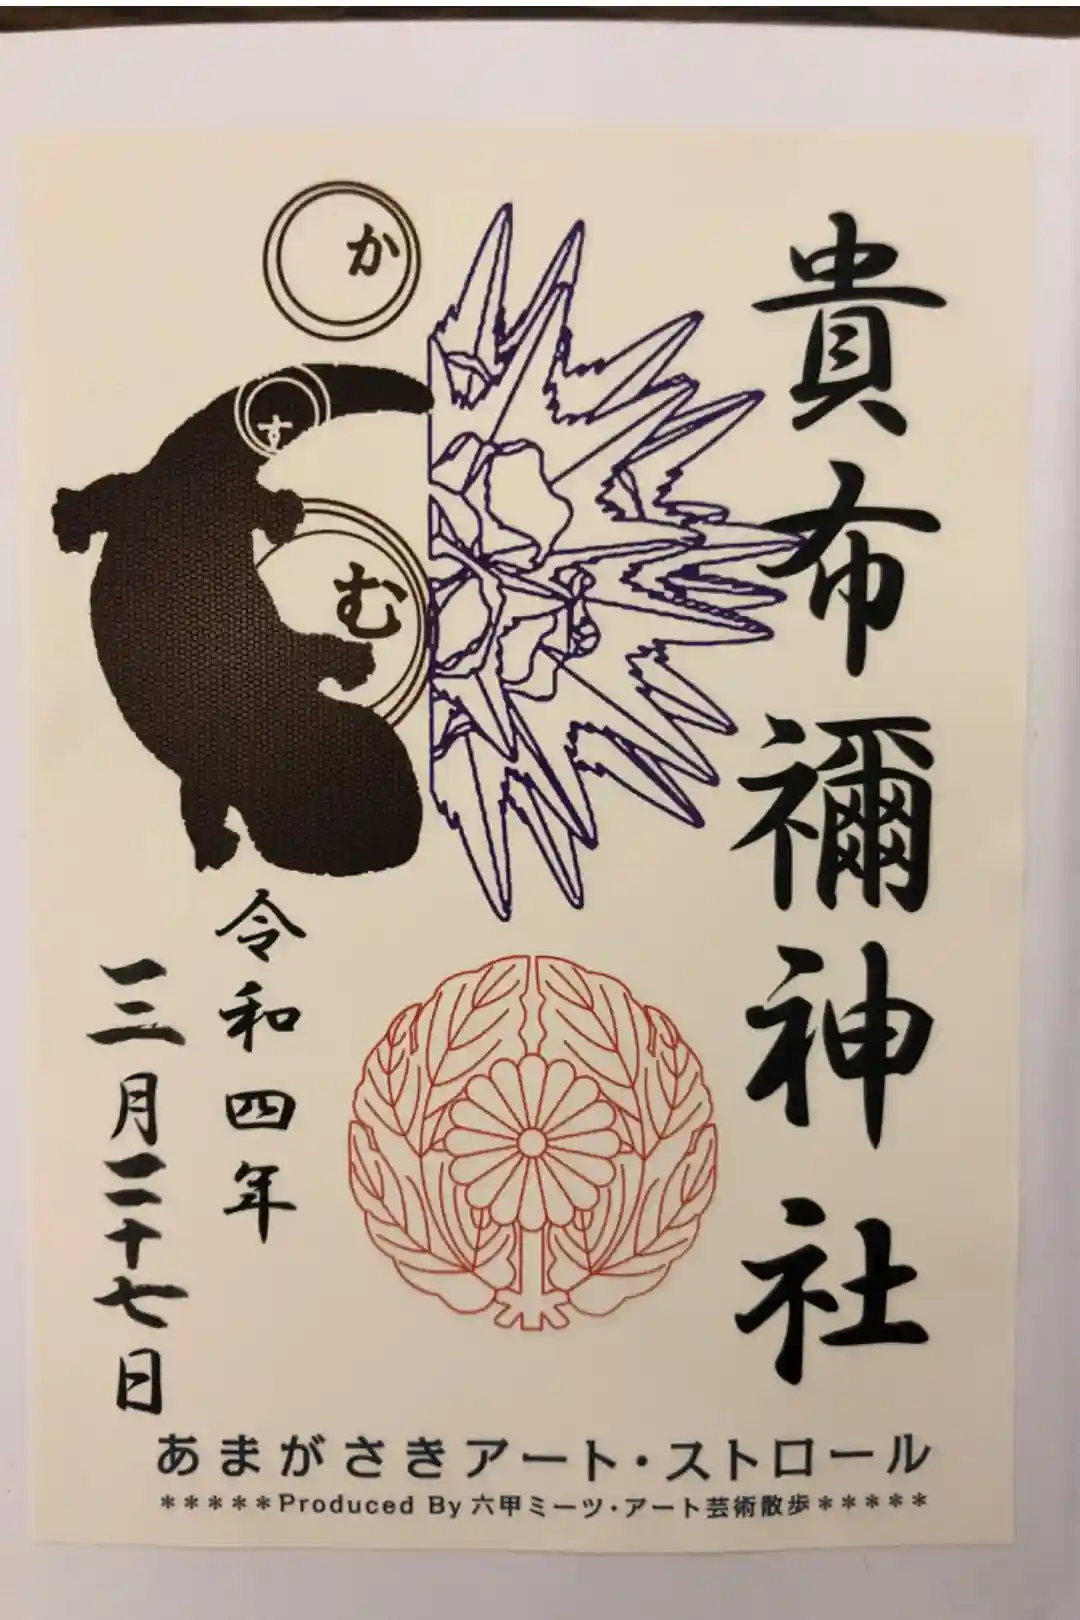 貴布禰神社
か
す
む
令和四年
三月二十七日
あまがさきアート・ストロール
*****Produced By 六甲ミーツ・アート芸術散歩*****